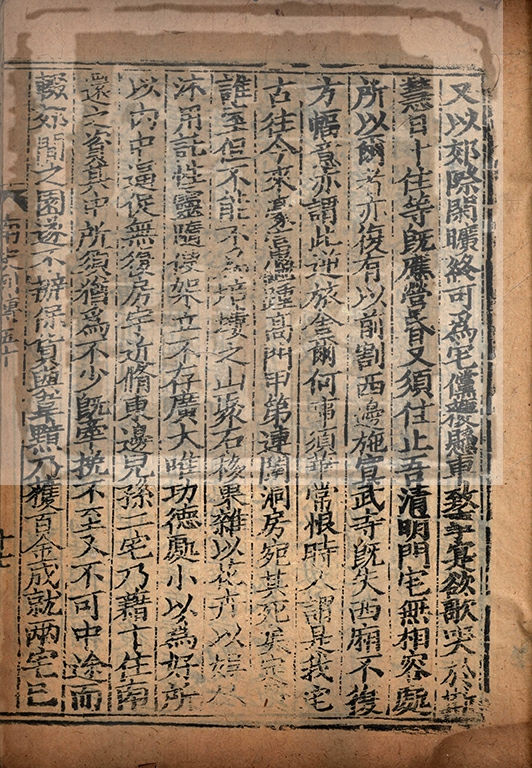 又以郊際閑曠終可爲宅儻獲懸車致事實欲歌哭於斯
慧日十住等旣應營昏又須住止吾清明門宅無相容處
所以爾者亦復有以前割西邊施宣武寺旣失西廂不復
方幅意亦謂此逆旅舍爾何事須華常恨時人謂是我宅
古往今來豪富繼踵高門甲第連闥洞房宛其死矣定是
誰室但不能不爲培塿之山聚石移果雜以花卉以娛休
沐用託性靈隨便架立不存廣大唯功德處小以爲好所
以內中逼促無復房宇近脩東邊兒孫二宅乃藉十住南
還之資其中所須猶爲不少旣牽挽不至又不可中途而
輟郊間之園遂不辦保貨與韋黯乃獲百金成就兩宅已
南史列傳五十
十七